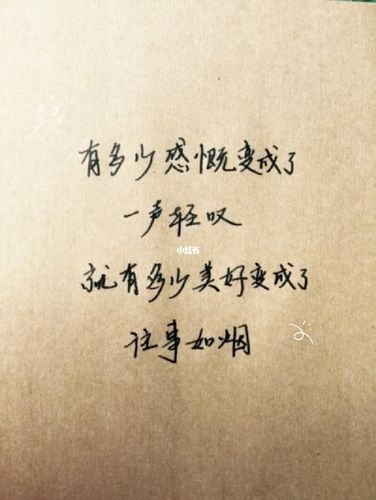 有多少感慨变成了
一声轻叹
小红书
就有多少美好变成了
往事如烟